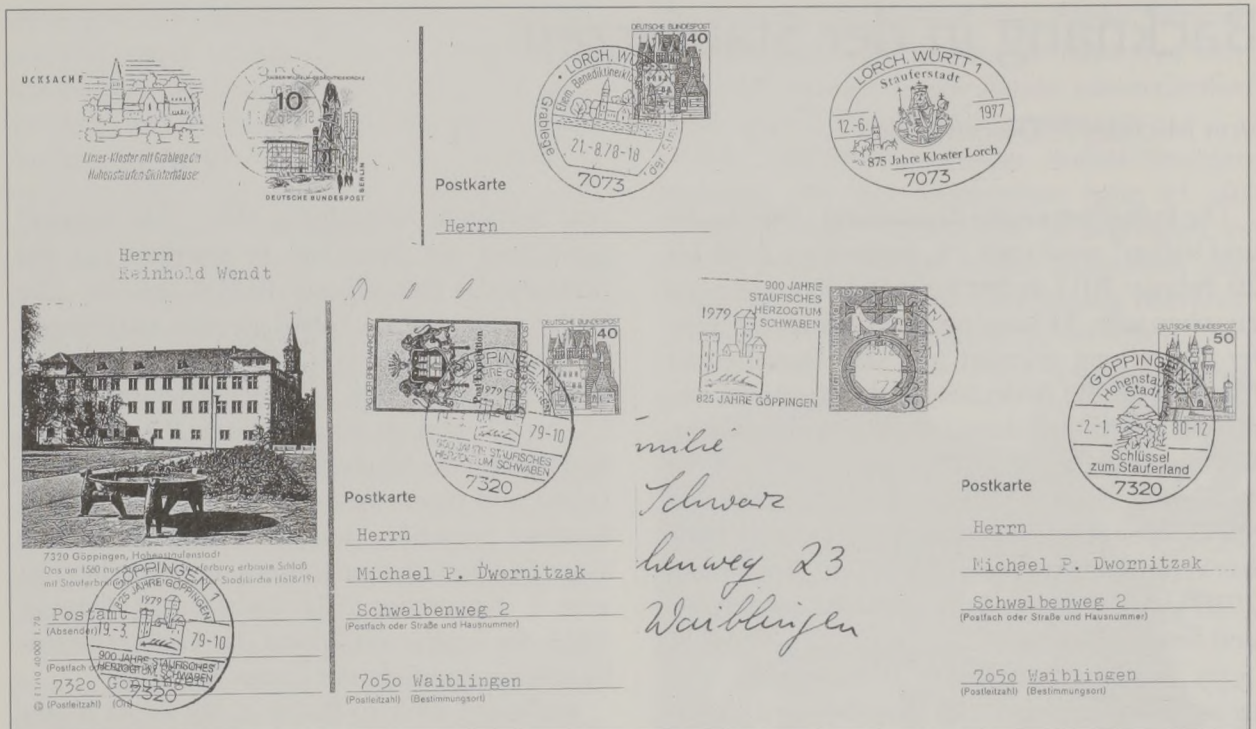 UCKSACHE
Limes-Kloster mit Grablege der
Hohenstaufen Dichterhäuser
LORCH
10
DEUTSCHE BUNDESPOST
BERLIN
DEUTSCHE BUNDESPOST
40
LORCH, WÜRTT
Ehem. Benediktinerkl
Grablege der Stau
21.-8.78-18
7073
Postkarte
Herrn
LORCH, WÜRTT 1
Stauferstadt
12.-6. 1977
875 Jahre Kloster Lorch
7073
Herrn
Reinhold Wendt
7320 Göppingen, Hohenstaufenstadt
Das um 1560 aus derburg erbaute Schloß
mit Stauferbr der Stadtkirche (1618/19)
GÖPPINGEN 1
825 JAHRE GÖPPINGEN
1979
19.-3. 79-10
900 JAHRE STAUFISCHES
HERZOGTUM SCHWABEN
7320
Postamt
(Absender)
(Postfach
7320 Göppingen
(Postleitzahl) (Ort)
© F1/10 40000 1.78
Post Expedition
DEUTSCHE BUNDESPOST
40
GÖPPINGEN 1
1979
79-10
900 JAHRE STAUFISCHES
HERZOGTUM SCHWABEN
7320
Postkarte
Herrn
Michael P. Dwornitzak
Schwalbenweg 2
(Postfach oder Straße und Hausnummer)
7050 Waiblingen
(Postleitzahl) (Bestimmungsort)
900 JAHRE
STAUFISCHES
1979 HERZOGTUM
SCHWABEN
825 JAHRE GÖPPINGEN
INGEN 1
50
milie
Schwarz
benweg 23
Waiblingen
DEUTSCHE BUNDESPOST
50
GÖPPINGEN 1
Hohenstaufen
Stadt
-2.-1. 80-12
Schlüssel
zum Stauferland
7320
Postkarte
Herrn
Michael P. Dwornitzak
Schwalbenweg 2
(Postfach oder Straße und Hausnummer)
7050 Waiblingen
(Postleitzahl) (Bestimmungsort)